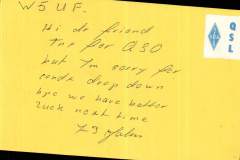 W5UF.
Hi dr friend
Tnx for QSO
but I'm sorry for
condx drop down
hpe we have better
luck next time
73
QSL